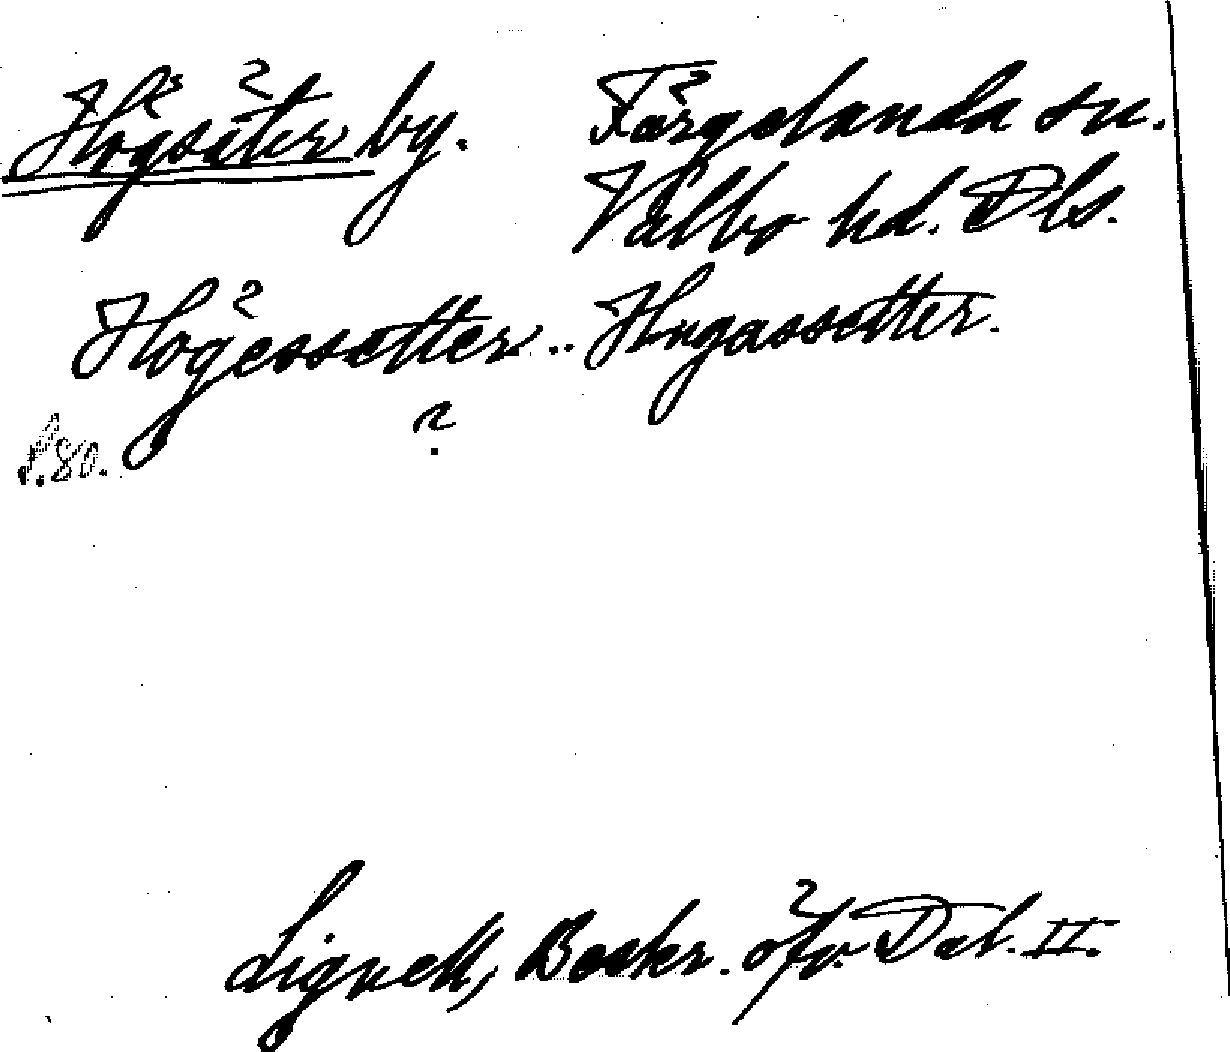 Högsäter by. Färgelanda sn.
Valbo hd. Dls.
Högessetter.. Hugassetter.
S. 80. ?
Lignell, Beskr. öfv. Dal. II.